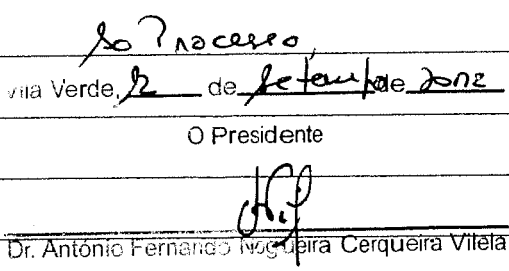 Ao Processo,
Vila Verde, 12 de Setembro de 2012
O Presidente
Dr. António Fernando Nogueira Cerqueira Vilela